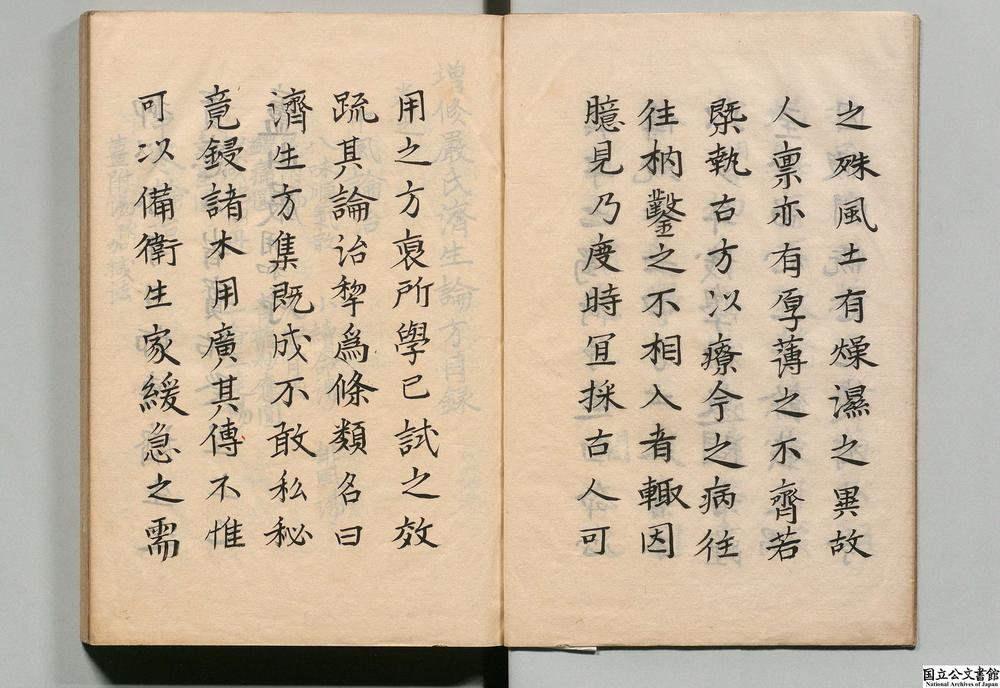 之殊風土有燥濕之異故
人禀亦有厚薄之不齊若
槩執古方以療今之病往
往枘鑿之不相入者輙因
臆見乃度時宜採古人可
用之方裒所學已試之效
疏其論治犂爲條類名曰
濟生方集既成不敢私秘
竟鋟諸木用廣其傳不惟
可以備衛生家緩急之需
増修嚴氏濟生論方目録
国立公文書館
National Archives of Japan